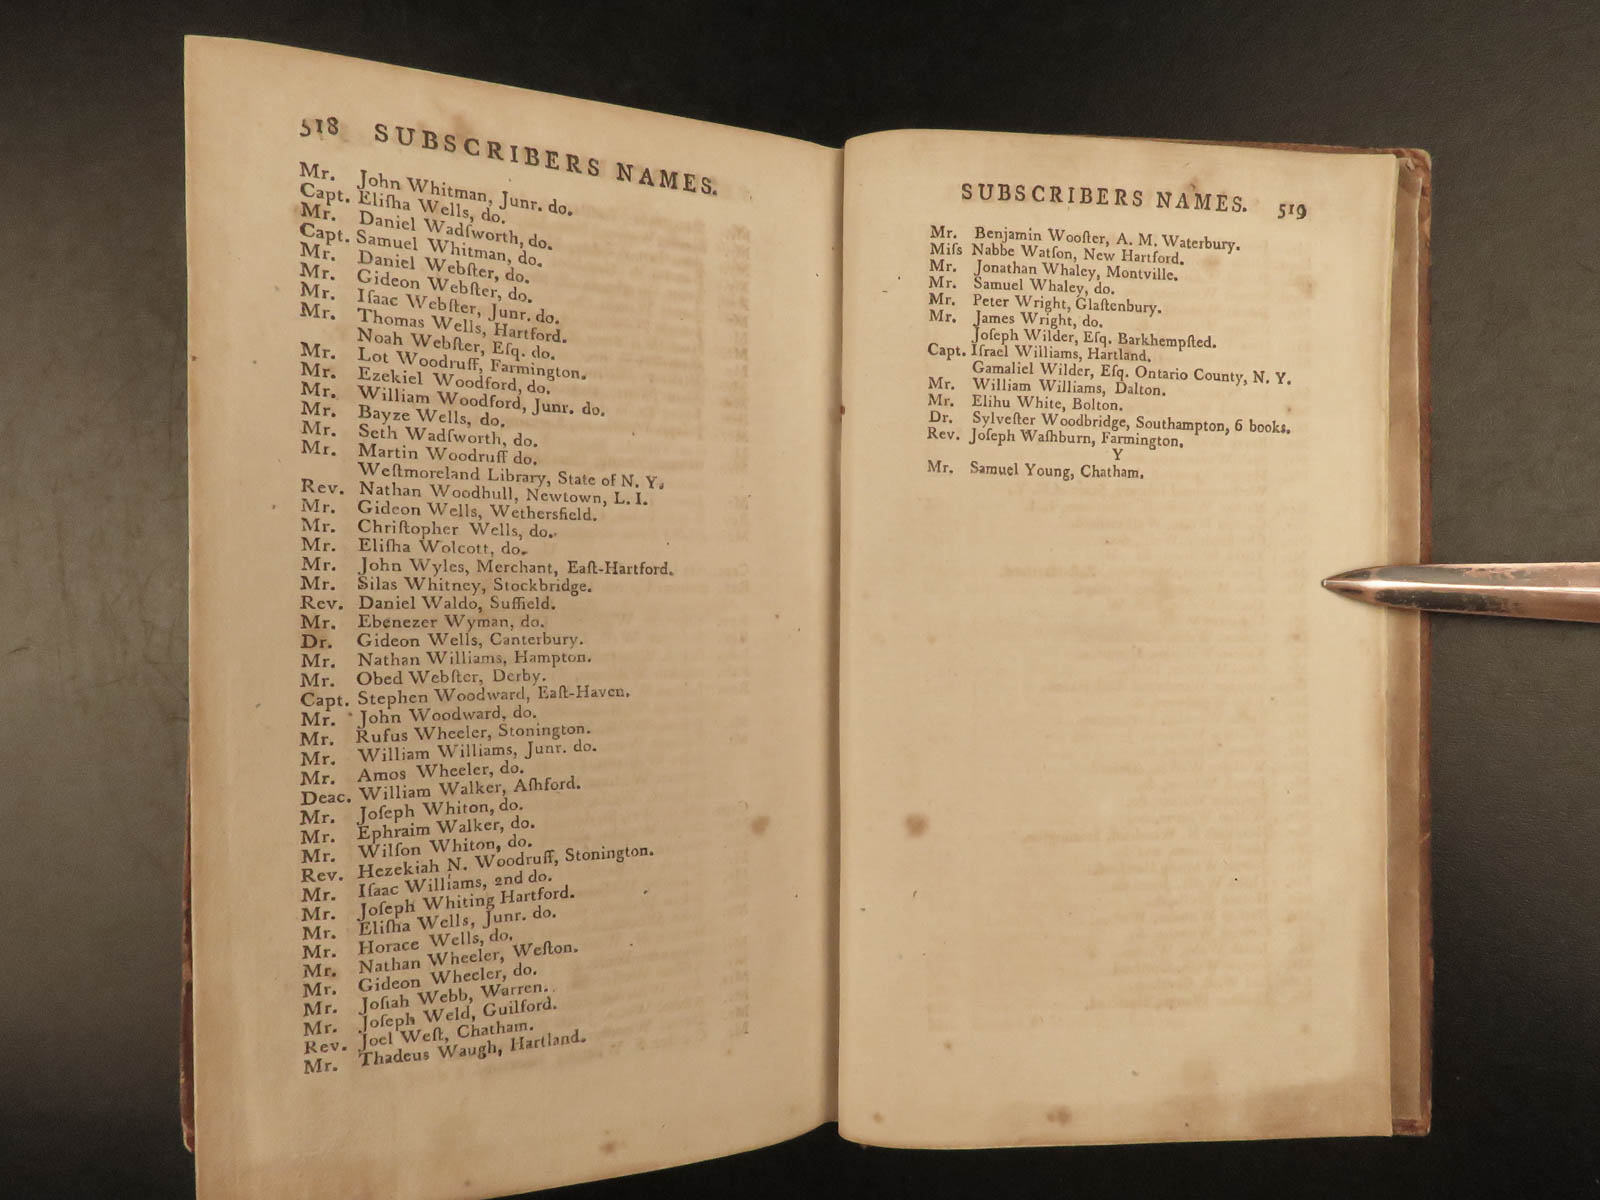 518 SUBSCRIBERS NAMES.
Mr. John Whitman, Junr. do.
Capt. Eliſha Wells, do.
Mr. Daniel Wadſworth, do.
Capt. Samuel Whitman, do.
Mr. Daniel Webſter, do.
Mr. Gideon Webſter, do.
Mr. Iſaac Webſter, Junr. do.
Mr. Thomas Wells, Hartford.
Noah Webſter, Eſq. do.
Mr. Lot Woodruff, Farmington.
Mr. Ezekiel Woodford, do.
Mr. William Woodford, Junr. do.
Mr. Bayze Wells, do.
Mr. Seth Wadſworth, do.
Mr. Martin Woodruff do.
Weſtmoreland Library, State of N. Y.
Rev. Nathan Woodhull, Newtown, L. I.
Mr. Gideon Wells, Wethersfield.
Mr. Chriſtopher Wells, do.
Mr. Eliſha Wolcott, do.
Mr. John Wyles, Merchant, Eaſt-Hartford.
Mr. Silas Whitney, Stockbridge.
Rev. Daniel Waldo, Suffield.
Mr. Ebenezer Wyman, do.
Dr. Gideon Wells, Canterbury.
Mr. Nathan Williams, Hampton.
Mr. Obed Webſter, Derby.
Capt. Stephen Woodward, Eaſt-Haven.
Mr. John Woodward, do.
Mr. Rufus Wheeler, Stonington.
Mr. William Williams, Junr. do.
Mr. Amos Wheeler, do.
Deac. William Walker, Aſhford.
Mr. Joſeph Whiton, do.
Mr. Ephraim Walker, do.
Mr. Wilſon Whiton, do.
Rev. Hezekiah N. Woodruff, Stonington.
Mr. Iſaac Williams, 2nd do.
Mr. Joſeph Whiting Hartford.
Mr. Eliſha Wells, Junr. do.
Mr. Horace Wells, do.
Mr. Nathan Wheeler, Weſton.
Mr. Gideon Wheeler, do.
Mr. Joſiah Webb, Warren.
Mr. Joſeph Weld, Guilford.
Rev. Joel Weſt, Chatham.
Mr. Thadeus Waugh, Hartland.
SUBSCRIBERS NAMES. 519
Mr. Benjamin Wooſter, A. M. Waterbury.
Miſs Nabbe Watſon, New Hartford.
Mr. Jonathan Whaley, Montville.
Mr. Samuel Whaley, do.
Mr. Peter Wright, Glaſtenbury.
Mr. James Wright, do.
Joſeph Wilder, Eſq. Barkhempſted.
Capt. Iſrael Williams, Hartland.
Gamaliel Wilder, Eſq. Ontario County, N. Y.
Mr. William Williams, Dalton.
Mr. Elihu White, Bolton.
Dr. Sylveſter Woodbridge, Southampton, 6 books.
Rev. Joſeph Waſhburn, Farmington.
Y
Mr. Samuel Young, Chatham.